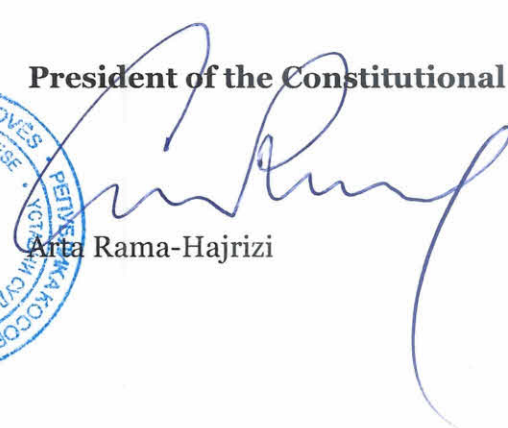 President of the Constitutional
Arta Rama-Hajrizi
РЕПУБЛИКА КОСОВ
УСТАВНИ СУД